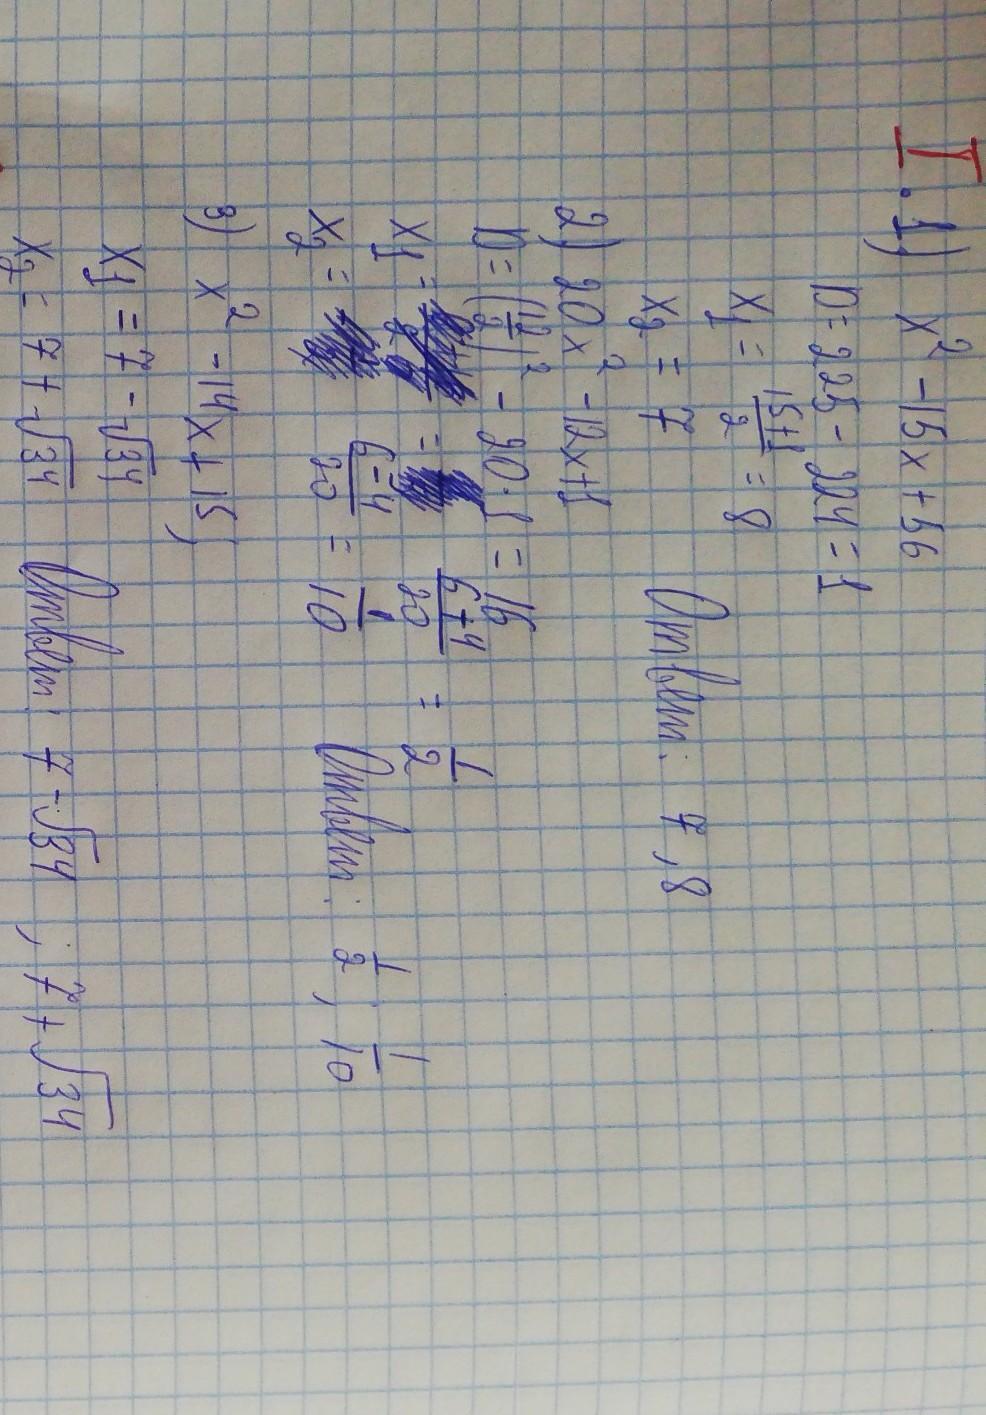 I. 1) x² - 15x + 56
D = 225 - 224 = 1
x₁ = 15+1/2 = 8
x₂ = 7 Ответ: 7, 8
2) 20x² - 12x + 1
D = (12/2)² - 20·1 = 16
x₁ = = 6+4/20 = 1/2
x₂ = 6-4/20 = 1/10 Ответ: 1/2, 1/10
3) x² - 14x + 15)
x₁ = 7 - √34
x₂ = 7 + √34 Ответ: 7 - √34 ; 7 + √34